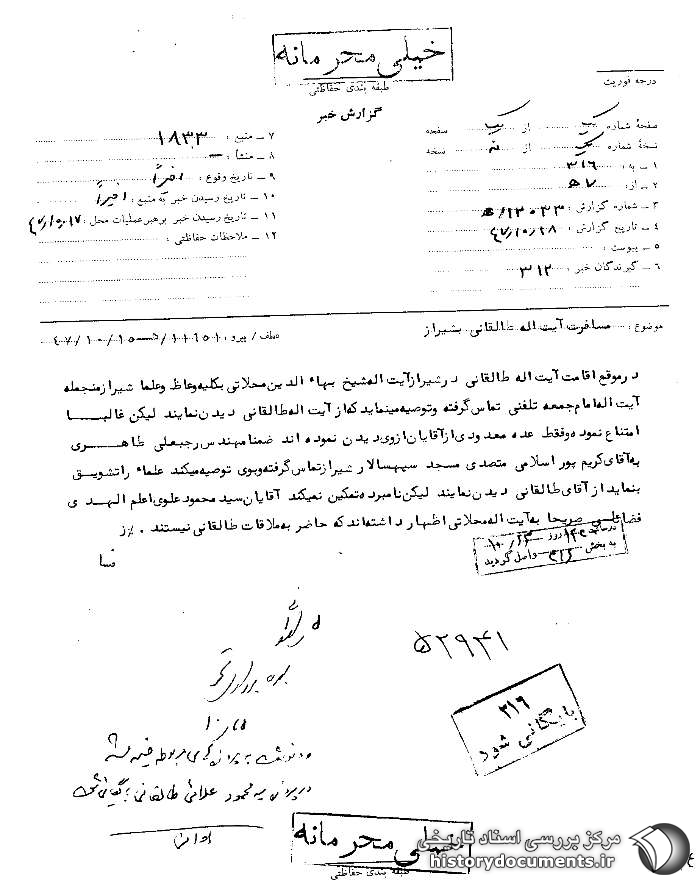 خیلی محرمانه
طبقه بندی حفاظتی
گزارش خبر
درجه فوریت
صفحهٔ شماره یک از یک صفحه
نسخهٔ شماره از نسخه
۱ ـ به : ۳۱۶
۲ ـ از :
۳ ـ شماره گزارش :
۴ ـ تاریخ گزارش : ۴۷/۱۰/۱۸
۵ ـ پیوست :
۶ ـ گیرندگان خبر : ۳۱۲
۷ ـ منبع : ۱۸۳۳
۸ ـ منشأ : ـ
۹ ـ تاریخ وقوع : اخیراً
۱۰ ـ تاریخ رسیدن خبر به منبع : اخیراً
۱۱ ـ تاریخ رسیدن خبر برهبر عملیات محل : ۴۷/۱۰/۱۷
۱۲ ـ ملاحظات حفاظتی :
موضوع : مسافرت آیت اله طالقانی بشیراز
عطف / پیرو :
درموقع اقامت آیت اله طالقانی درشیراز آیت اله شیخ بهاء الدین محلاتی بکلیه وعاظ وعلما شیراز منجمله
آیت اله امام جمعه تلفنی تماس گرفته وتوصیه مینماید که از آیت اله طالقانی دیدن نمایند لیکن غالبـــا
امتناع نموده وفقط عده معدودی از آقایان ازوی دیدن نموده اند ضمنا مهندس رجبعلی طاهـــری
به آقای کریم پور اسلامی متصدی مسجد سپهسالار شیراز تماس گرفته وبوی توصیه میکند علماء را تشویق
بنماید از آقای طالقانی دیدن نمایند لیکن نامبرده تمکین نمیکند آقایان سید محمود علوی اعلم الهـدی
صریحا به آیت اله محلاتی اظهار داشته اند که حاضر به ملاقات طالقانی نیستند .
فسا
به بخش ۳۱۶ واصل گردید
۵۲۹۴۱
۳۱۶
بایگانی شود
در پرونده سید محمود علائی طالقانی بایگانی شود
خیلی محرمانه
طبقه بندی حفاظتی
مرکز بررسی اسناد تاریخی
historydocuments.ir